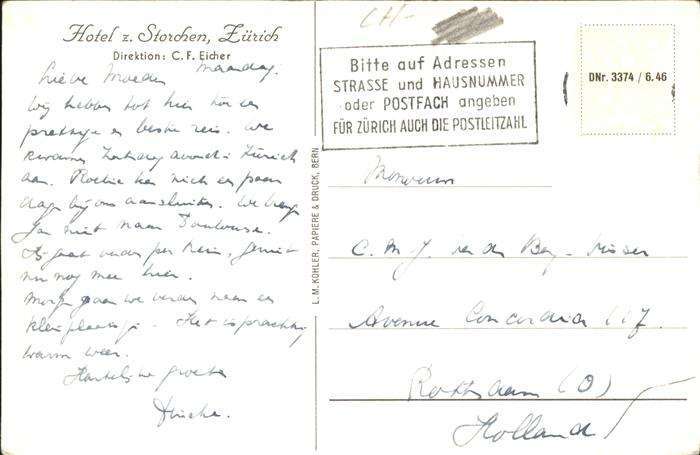 Hotel z. Storchen, Zürich
Direktion: C. F. Eicher
Lieve Moeder Maandag.
Wij hebben tot hier toe een
prettige en beste reis. We
kwamen Zaterdag avond in Zürich
aan. kan zich een paar
dagen bij ons aansluiten. We
niet naar Toulouse.
gaat verder per trein, geniet
nu nog mee hier.
Morgen gaan we verder naar een
klein plaatsje. Het is prachtig
warm weer.
Hartelijke groeten
CH-
Bitte auf Adressen
STRASSE und HAUSNUMMER
oder POSTFACH angeben
FÜR ZÜRICH AUCH DIE POSTLEITZAHL
DNr. 3374 / 6.46
L. M. KOHLER, PAPIERE & DRUCK, BERN
Mevrouw
C. M. J. v. d. Berg - Visser
Avenue Concordia 117
Rotterdam (O)
Holland